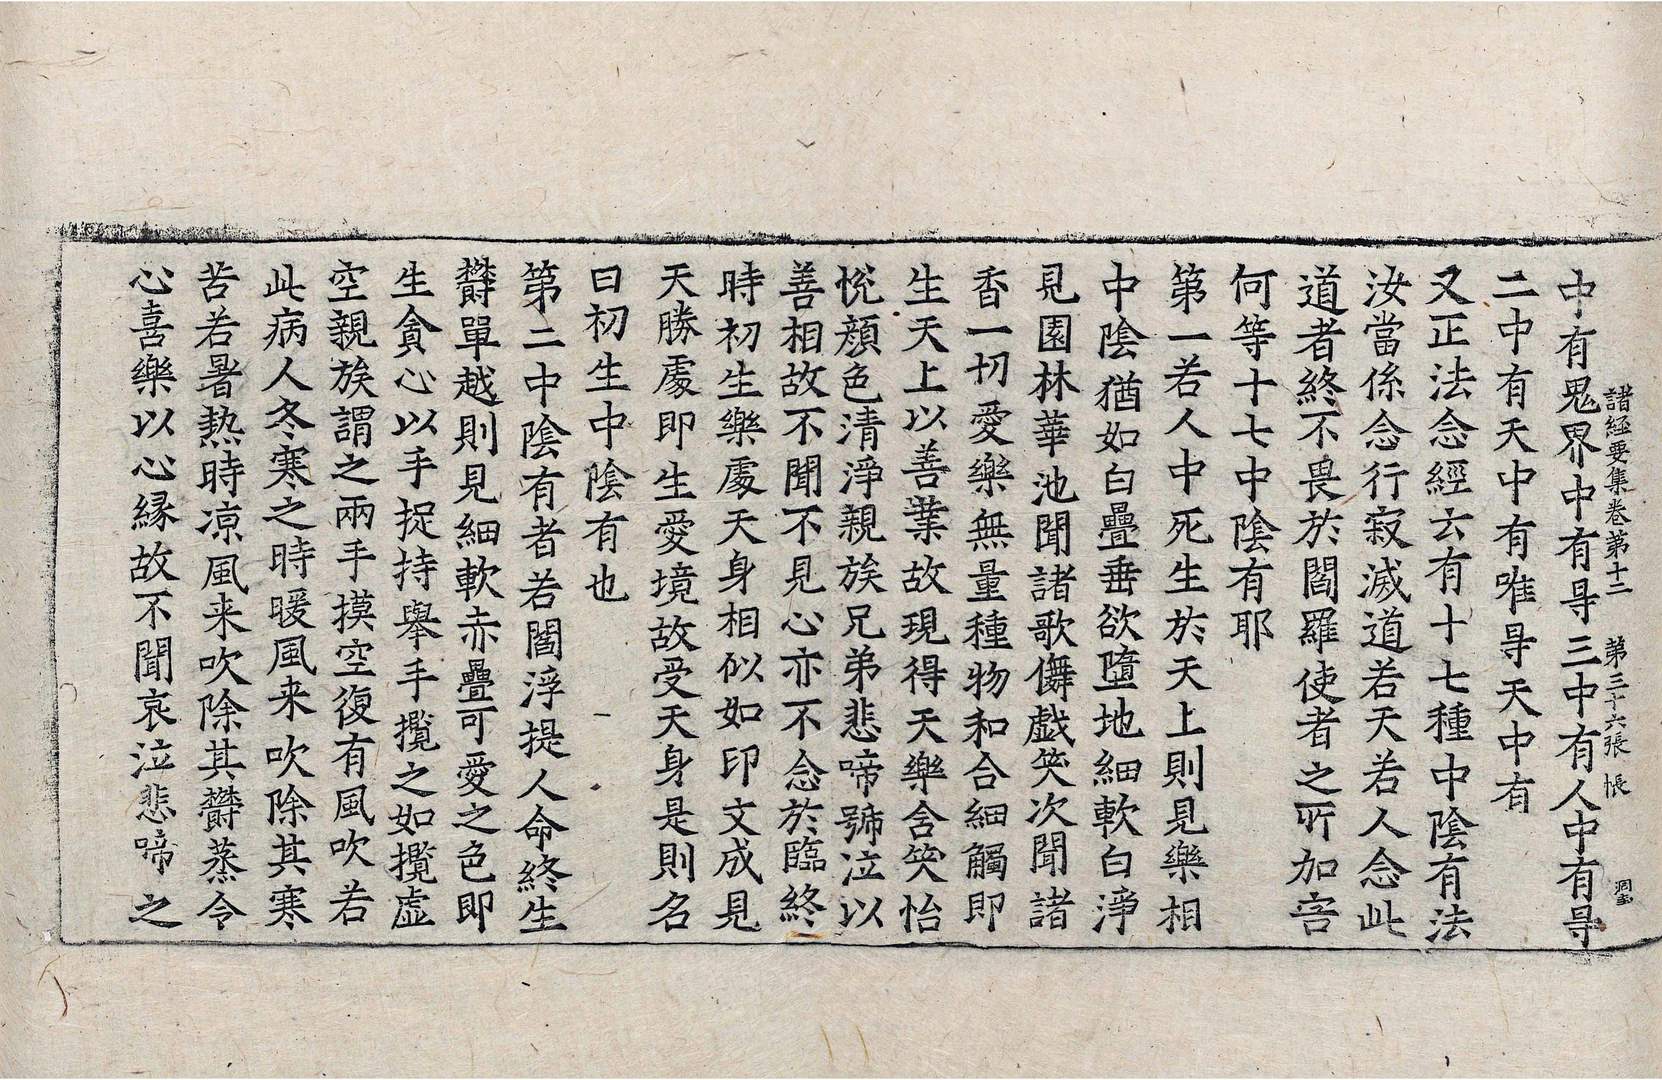 諸經要集卷第十二 第三十六張 帳
中有鬼界中有㝵三中有人中有㝵
二中有天中有唯㝵天中有
又正法念經云有十七種中陰有法
汝當係念行寂滅道若天若人念此
道者終不畏於閻羅使者之所加害
何等十七中陰有耶
第一若人中死生於天上則見樂相
中陰猶如白疊垂欲墮地細軟白淨
見園林華池聞諸歌儛戲笑次聞諸
香一切愛樂無量種物和合細觸即
生天上以善業故現得天樂含笑怡
悅顏色清淨親族兄弟悲啼號泣以
善相故不聞不見心亦不念於臨終
時初生樂處天身相似如印文成見
天勝處即生愛境故受天身是則名
曰初生中陰有也
第二中陰有者若閻浮提人命終生
欝單越則見細軟赤疊可愛之色即
生貪心以手捉持舉手攬之如攬虛
空親族謂之兩手摸空復有風吹若
此病人冬寒之時暖風来吹除其寒
苦若暑熱時凉風来吹除其欝蒸令
心喜樂以心緣故不聞哀泣悲啼之